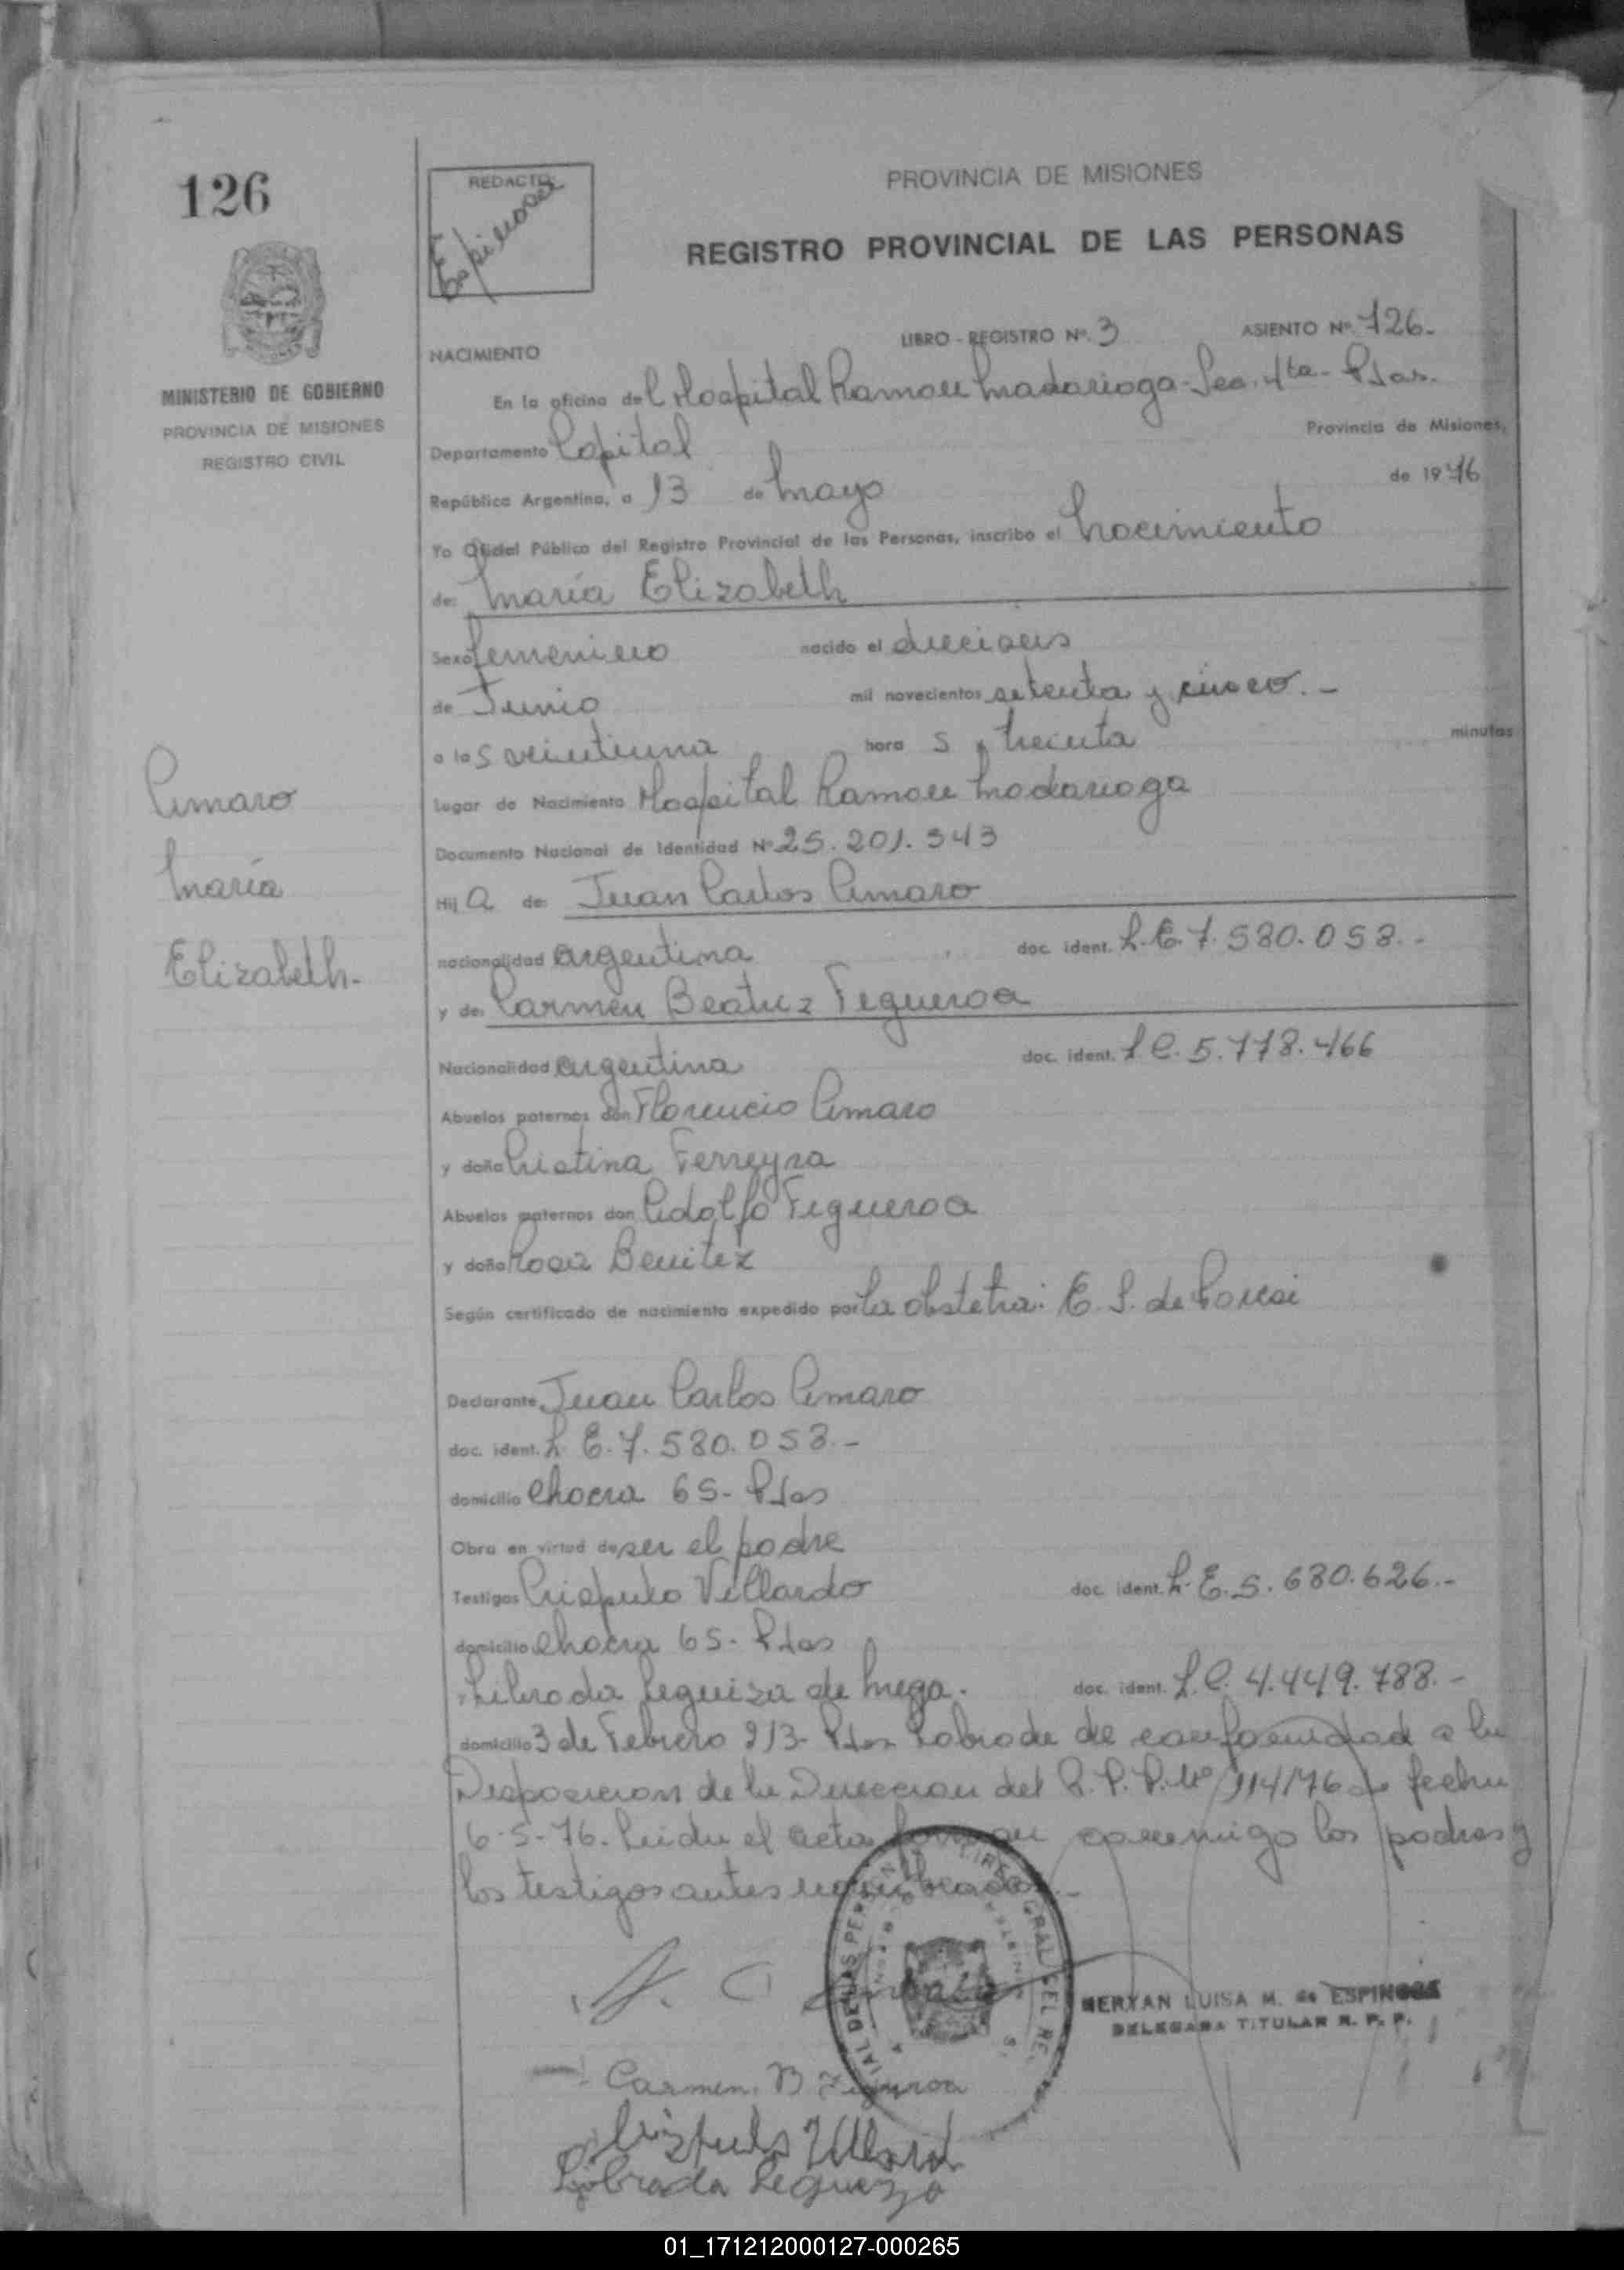 126
MINISTERIO DE GOBIERNO
PROVINCIA DE MISIONES
REGISTRO CIVIL
REDACTO:
Espinosa
PROVINCIA DE MISIONES
REGISTRO PROVINCIAL DE LAS PERSONAS
NACIMIENTO
LIBRO - REGISTRO Nº. 3
ASIENTO Nº. 126.-
En la oficina del Hospital Ramon Madariaga - Sec. 4ta - Pdas.
Departamento Capital Provincia de Misiones,
República Argentina, a 13 de Mayo de 1976
Yo Oficial Público del Registro Provincial de las Personas, inscribo el Nacimiento
de: María Elizabeth
Sexo femenino nacido el dieciseis
de Junio mil novecientos setenta y cinco. -
a las veintiuna horas y treinta minutos
Lugar de Nacimiento Hospital Ramon Madariaga
Documento Nacional de Identidad Nº 25.201.343
Hija de: Juan Carlos Amaro
nacionalidad argentina doc. ident. L.E. 7.580.058.-
y de: Carmen Beatriz Figueroa
Nacionalidad argentina doc. ident. L.C. 5.778.466
Abuelos paternos don Florencio Amaro
y doña Cristina Ferreyra
Abuelos maternos don Adolfo Figueroa
y doña Rosa Benitez
Según certificado de nacimiento expedido por la obstetra: E. S. de
Amaro
María
Elizabeth.-
Declarante Juan Carlos Amaro
doc. ident. L.E. 7.580.058.-
domicilio Chacra 65 - Pdas
Obra en virtud de ser el padre
Testigos Crispulo Villardo doc. ident. L.E. 5.680.626.-
domicilio Chacra 65 - Pdas
Librada Leguiza de Mega. doc. ident. L.C. 4.449.788.-
domicilio 3 de Febrero 213 - Pdas Labrada de conformidad a la
Disposicion de la Direccion del R.P.P. Nº 114/76 de fecha
6-5-76. Leida el acta firman conmigo los padres y
los testigos antes nombrados.-
MERYAN LUISA M. de ESPINOSA
DELEGADA TITULAR R. P. P.
Carmen B Figueroa
Crispulo Villard
Librada Leguiza
01_171212000127-000265